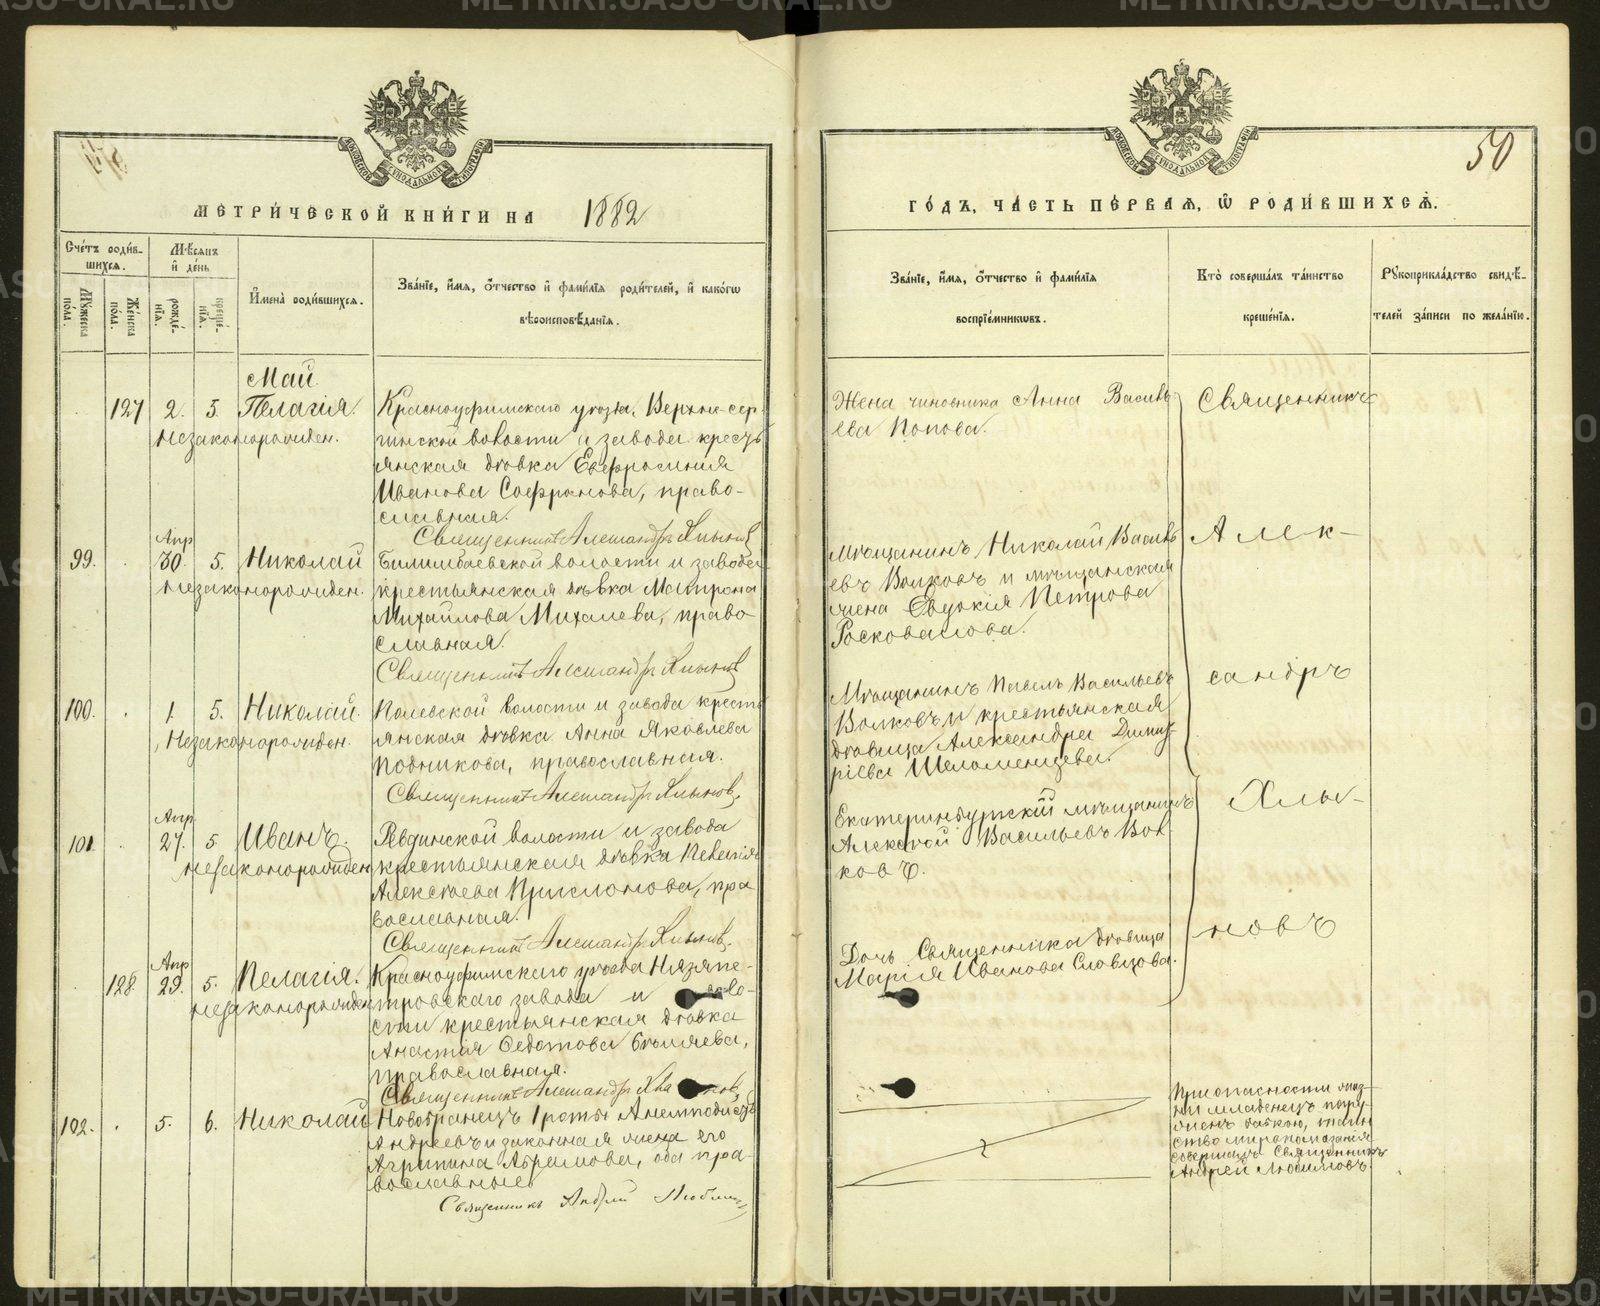 МЕТРИ́ЧЕСКОЙ КНИ́ГИ НА 1882
Счéтъ роди́в-
шихсѧ.
Мѣ́сѧцъ
и҆ де́нь
Мꙋ́жеска
по́ла.
Же́нска
по́ла.
рожде́-
нїѧ.
креще́-
нїѧ.
И҆мена̀ роди́вшихсѧ.
Зва́нїе, и҆́мѧ, ѻ҆́тчество и҆ фами́лїѧ роди́телей, и҆ како́гѡ
вѣроисповѣ́данїѧ.
Май.
127 2. 3. Пелагія.
незаконорожден.
Красноуфимскаго уѣзда, Верхне-сер-
гинской волости и завода кресть
янская дѣвка Евфросинія
Иванова Софронова, право-
славная.
Священникъ Александръ Хлыновъ
99. Апр 30. 5. Николай
незаконорожден.
Билимбаевской волости и завода
крестьянская дѣвка Матрона
Михайлова Михалева, право
славная.
Священникъ Александръ Хлыновъ
100. 1. 5. Николай.
Незаконорожден.
Полевской волости и завода кресть
янская дѣвка Анна Яковлева
Подникова, православная.
Священникъ Александръ Хлыновъ.
101 Апр 27. 5 Иванъ.
незаконорожден
Ревдинской волости и завода
крестьянская дѣвка Пелагія
Алексѣева Прислонова, пра
вославная.
Священникъ Александръ Хлыновъ.
128. Апр 29. 5. Пелагія.
незаконорожден
Красноуфимскаго уѣзда Нязяпе-
тровскаго завода и воло-
сти крестьянская дѣвка
Анастія Федотова Бѣляева,
православная.
Священникъ Александръ Хлыновъ
102. 5. 6. Николай
Новобранецъ 1 роты Анемподистъ
Андреевъ и законная жена его
Агрипина Абрамова, оба пра-
вославные
Священникъ Андрей Любимовъ
МОСКОВСКОЙ СѴНОДАЛЬНОЙ ТИПОГРАФІИ
50
ГО́ДЪ, ЧА́СТЬ ПЕ́РВАѦ, Ѡ҆ РОДИ́ВШИХСѦ.
Зва́нїе, и҆́мѧ, ѻ҆́тчество и҆ фами́лїѧ
воспрїе́мникѡвъ.
Кто̀ соверша́лъ та́инство
креще́нїѧ.
Рꙋкоприкла́дство свидѣ́-
телей за́писи по жела́нїю.
Жена чиновника Анна Василь
ева Попова.
Мѣщанинъ Николай Василь
евъ Волковъ и мѣщанская
жена Евдокія Петрова
Росковалова.
Мѣщанинъ Павелъ Васильевъ
Волковъ и крестьянская
дѣвица Александра Димит-
ріева Шеломенцева.
Екатеринбургскій мѣщанинъ
Алексѣй Васильевъ Вол-
ковъ.
Дочь Священника дѣвица
Марія Иванова Словцова.
Священникъ
Алек-
сандръ
Хлы-
новъ
При опасности жиз-
ни младенецъ погру-
женъ бабкою, таин
ство миропомазанія
совершалъ Священникъ
Андрей Любимовъ.
METRIKI.GASO-URAL.RU